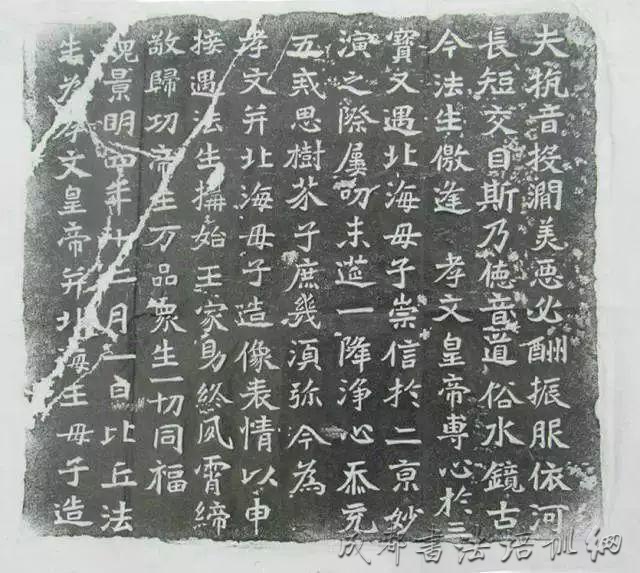 夫抗音投澗美惡必酬振服依河
長短交目斯乃德音道俗水鏡古
今法生儌逢 孝文皇帝專心於三
寶又遇北海母子崇信於二京妙
演之際屢叨末筵一降淨心忝充
五戒思樹芥子庶幾須弥今為
孝文并北海母子造像表情以申
接遇法生構始王家易終夙霄締
敬歸功帝王万品眾生一切同福
魏景明四年十二月一日比丘法
生為孝文皇帝并北海王母子造
成都書法培訓網